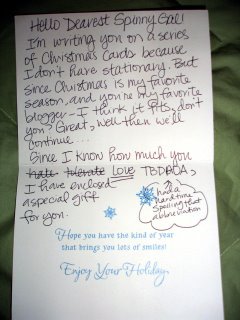 Hello Dearest Spinny Gal!
I'm writing you on a series
of Christmas Cards because
I don't have stationary. But
since Christmas is my favorite
season, and you're my favorite
blogger - I think it fits, don't
you? Great, well then we'll
continue...
Since I know how much you
hate tolerate Love TBDPOA,
I have enclosed
a special gift
for you.
I had a
hard time
spelling that
abbreviation
Hope you have the kind of year
that brings you lots of smiles!
Enjoy Your Holiday